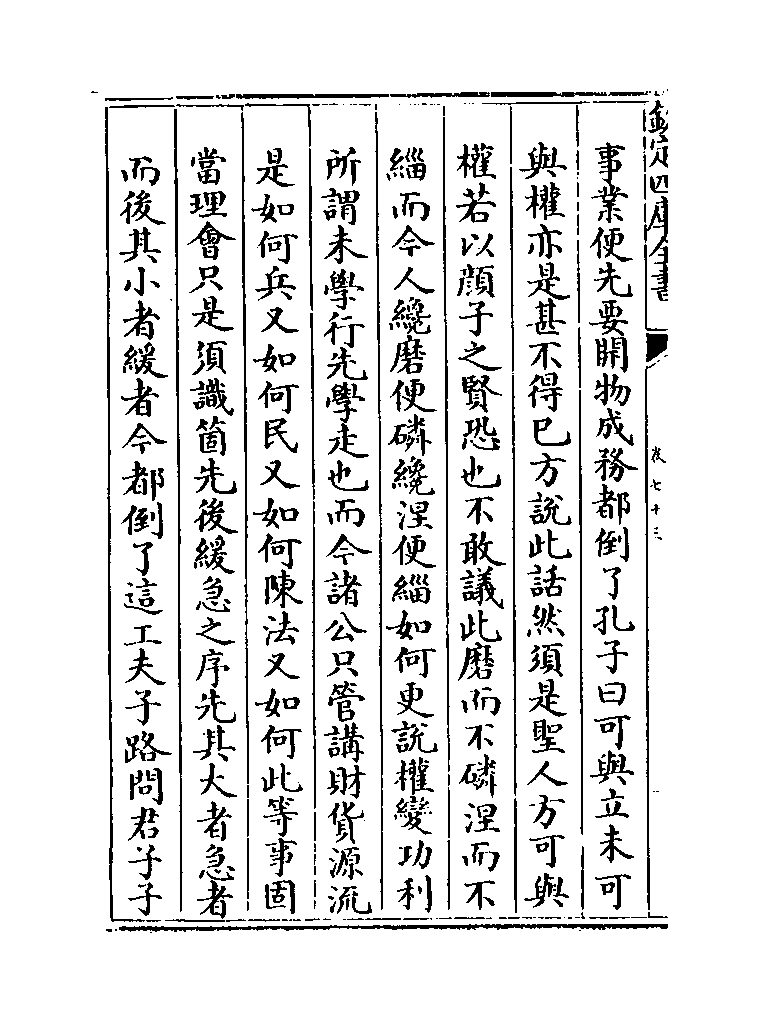 欽定四庫全書
卷七十三
事業便先要開物成務都倒了孔子曰可與立未可
與權亦是甚不得已方說此話然須是聖人方可與
權若以顔子之賢恐也不敢議此磨而不磷涅而不
緇而今人纔磨便磷纔涅便緇如何更說權變功利
所謂未學行先學走也而今諸公只管講財貨源流
是如何兵又如何民又如何陳法又如何此等事固
當理會只是須識箇先後緩急之序先其大者急者
而後其小者緩者今都倒了這工夫子路問君子子